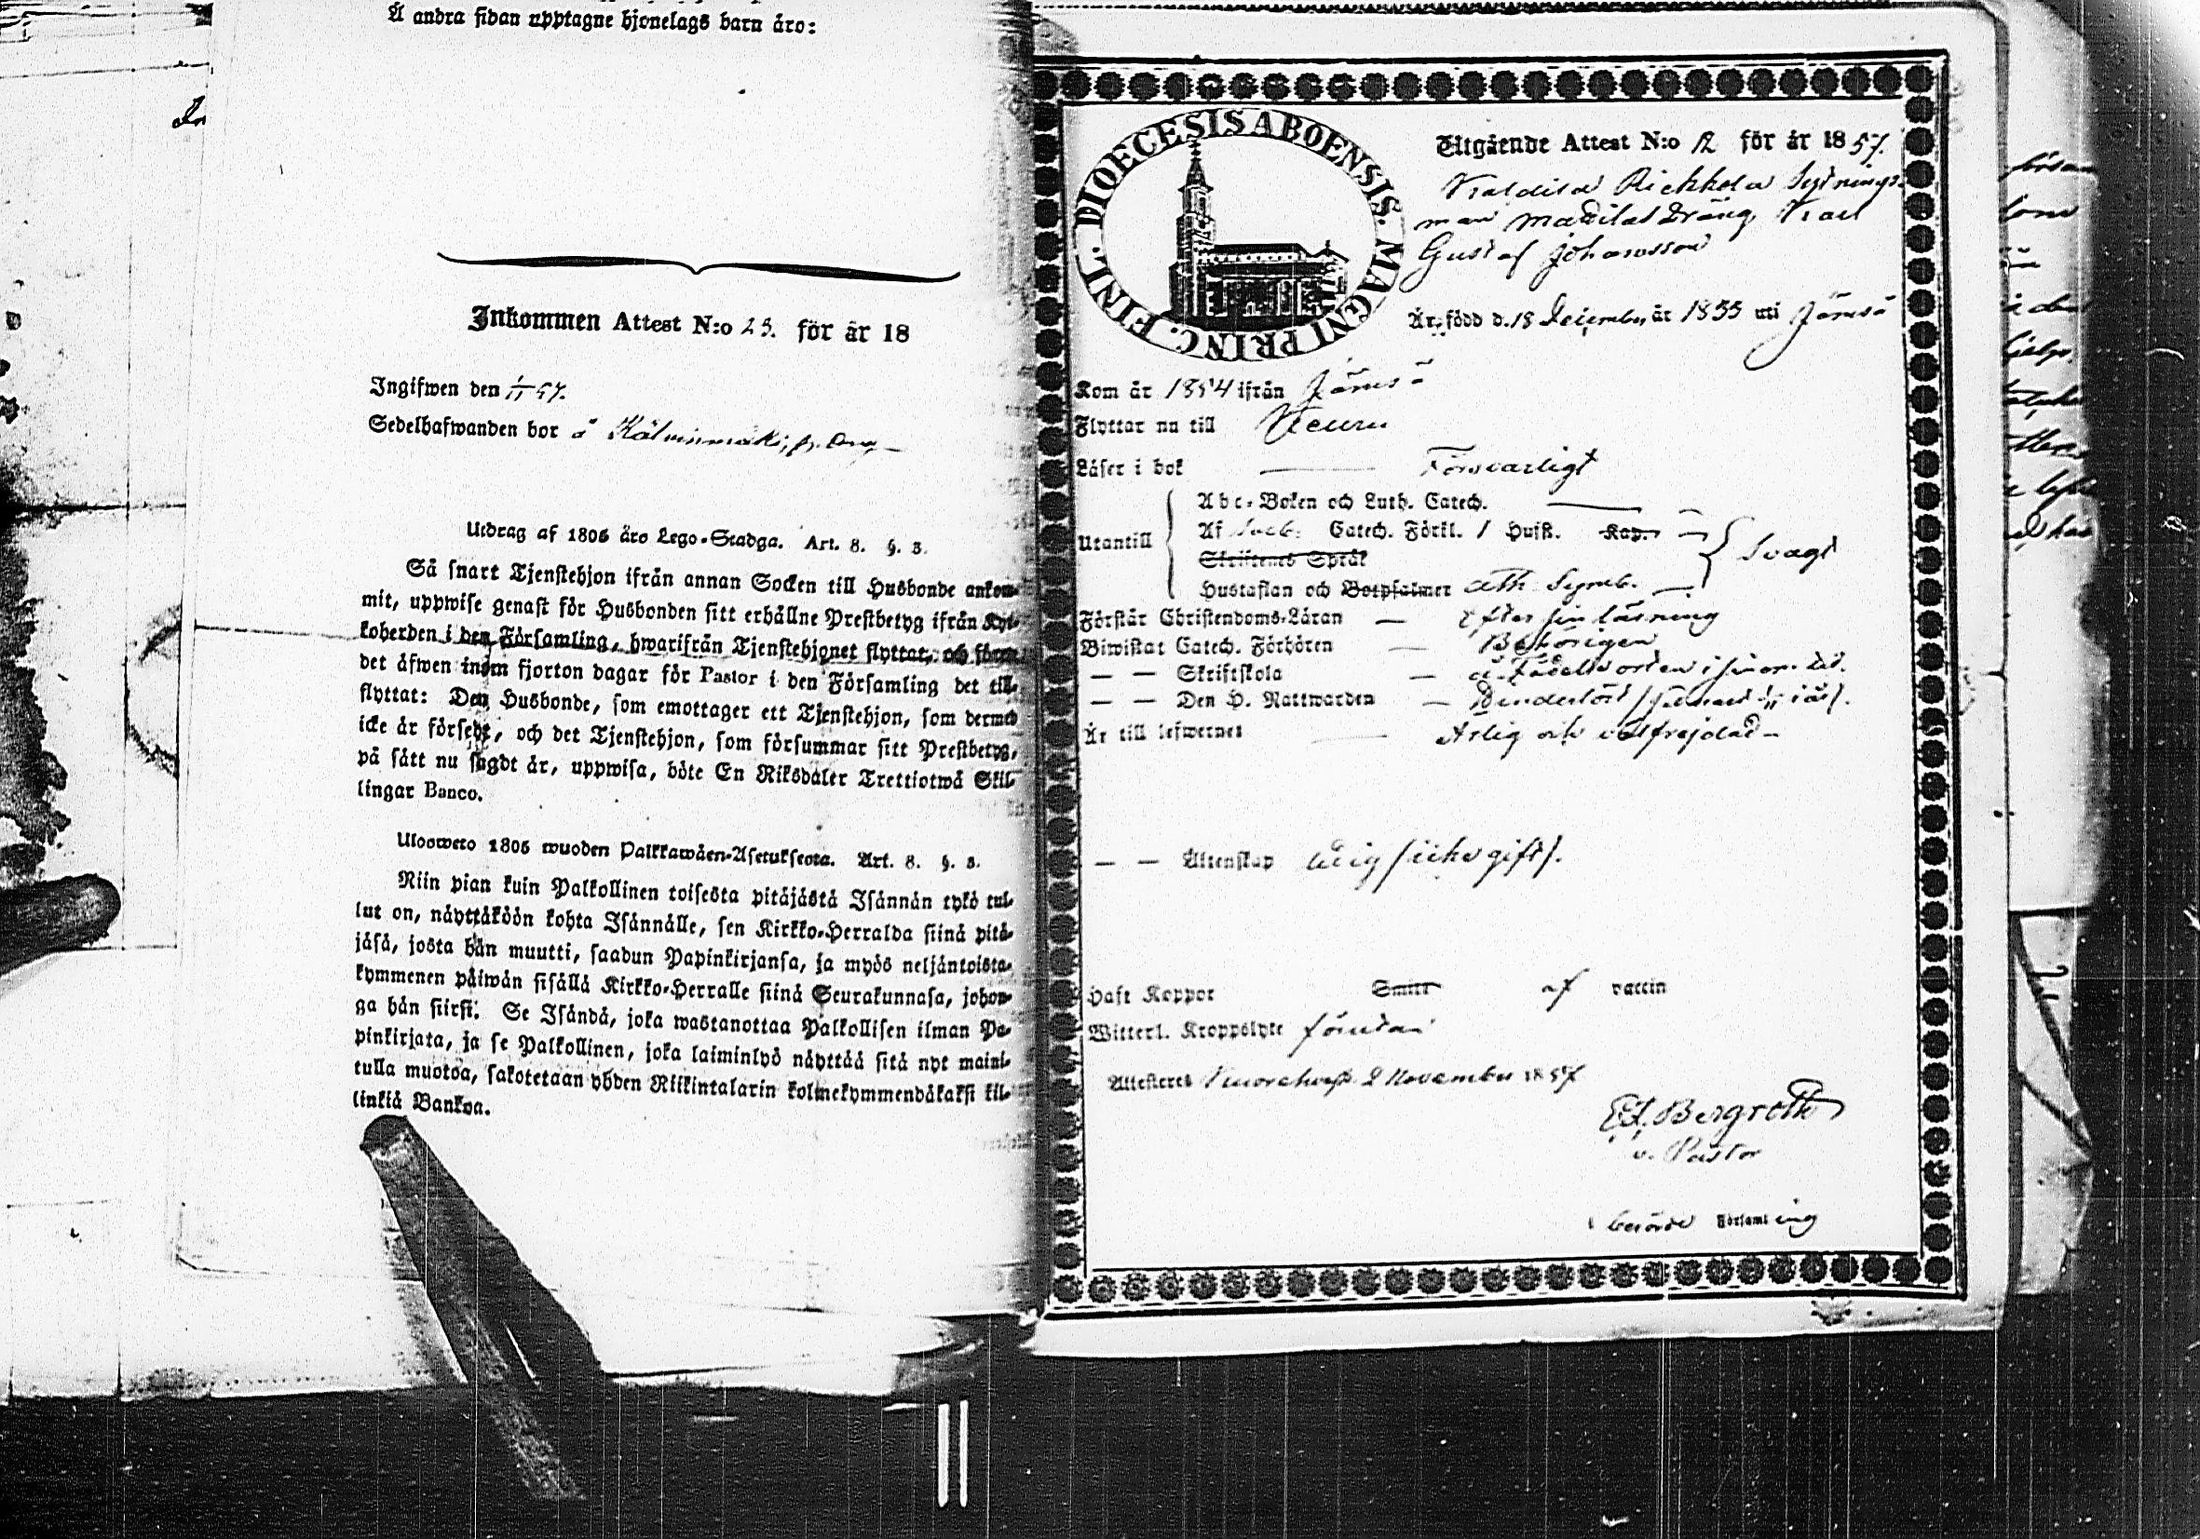 Å andra sidan upptagne hjonelags barn äro:
Inkommen Attest N:o 23. för år 18
Ingifwen den 1/11 57.
Sedelhafwanden bor å
Utdrag af 1805 års Lego-Stadga. Art. 8. §. 3.
Så snart Tjenstehjon ifrån annan Socken till Husbonde ankom-
mit, uppwise genast för Husbonden sitt erhållne Prestbetyg ifrån Kyr-
koherden i den Församling, hwarifrån Tjenstehjonet flyttat, och förete
det äfwen inom fjorton dagar för Pastor i den Församling det till-
flyttat: Den Husbonde, som emottager ett Tjenstehjon, som dermed
icke är försedt, och det Tjenstehjon, som försummar sitt Prestbetyg,
på sätt nu sagdt är, uppwisa, böte En Riksdaler Trettiotwå Skil-
lingar Banco.
Ulosweto 1805 wuoden Palkkawäen-Asetuksesta. Art. 8. §. 3.
Niin pian kuin Palkollinen toisesta pitäjästä Isännän tykö tul-
lut on, näyttäköön kohta Isännälle, sen Kirkko-Herralda siinä pitä-
jäsä, josta hän muutti, saadun Papinkirjansa, ja myös neljäntoista-
kymmenen päiwän sisällä Kirkko-Herralle siinä Seurakunnasa, johon-
ga hän siirsi: Se Isändä, joka wastanottaa Palkollisen ilman Pa-
pinkirjata, ja se Palkollinen, joka laiminlyö näyttää sitä nyt maini-
tulla muotoa, sakotetaan yhden Riikintalarin kolmekymmendäkaksi kil-
linkiä Bankoa.
DIOECESIS ABOENSIS. MAGNI PRINC. FINL.
Utgående Attest N:o 12 för år 1857.
Dräng Karl
Gustaf Johansson
Är född d. 18 December år 1835 uti Jämsä
Kom år 1854 ifrån Jämsä
Flyttar nu till Keuru
Läser i bok Försvarligt
Utantill
Abc-Boken och Luth. Catech.
Af Catech. Förkl. / Hufst. Kap.
Skriftenes Språk
Svagt
Hustaflan och Botpsalmer Ath. Symb.
Förstår Christendoms-Läran efter sin läsning
Biwistat Catech. Förhören Behörigen
— — Skriftskola å födelseorten i sinom tid.
— — Den H. Nattwarden
Är till lefwernet Ärlig och välfrejdad
— — Äktenskap ledig /icke gift/.
Haft Koppor Smitt af vaccin
Witterl. Kroppslyte förutan
Attesteres 2 November 1857
Bergroth
v. Pastor
i berörde Församling